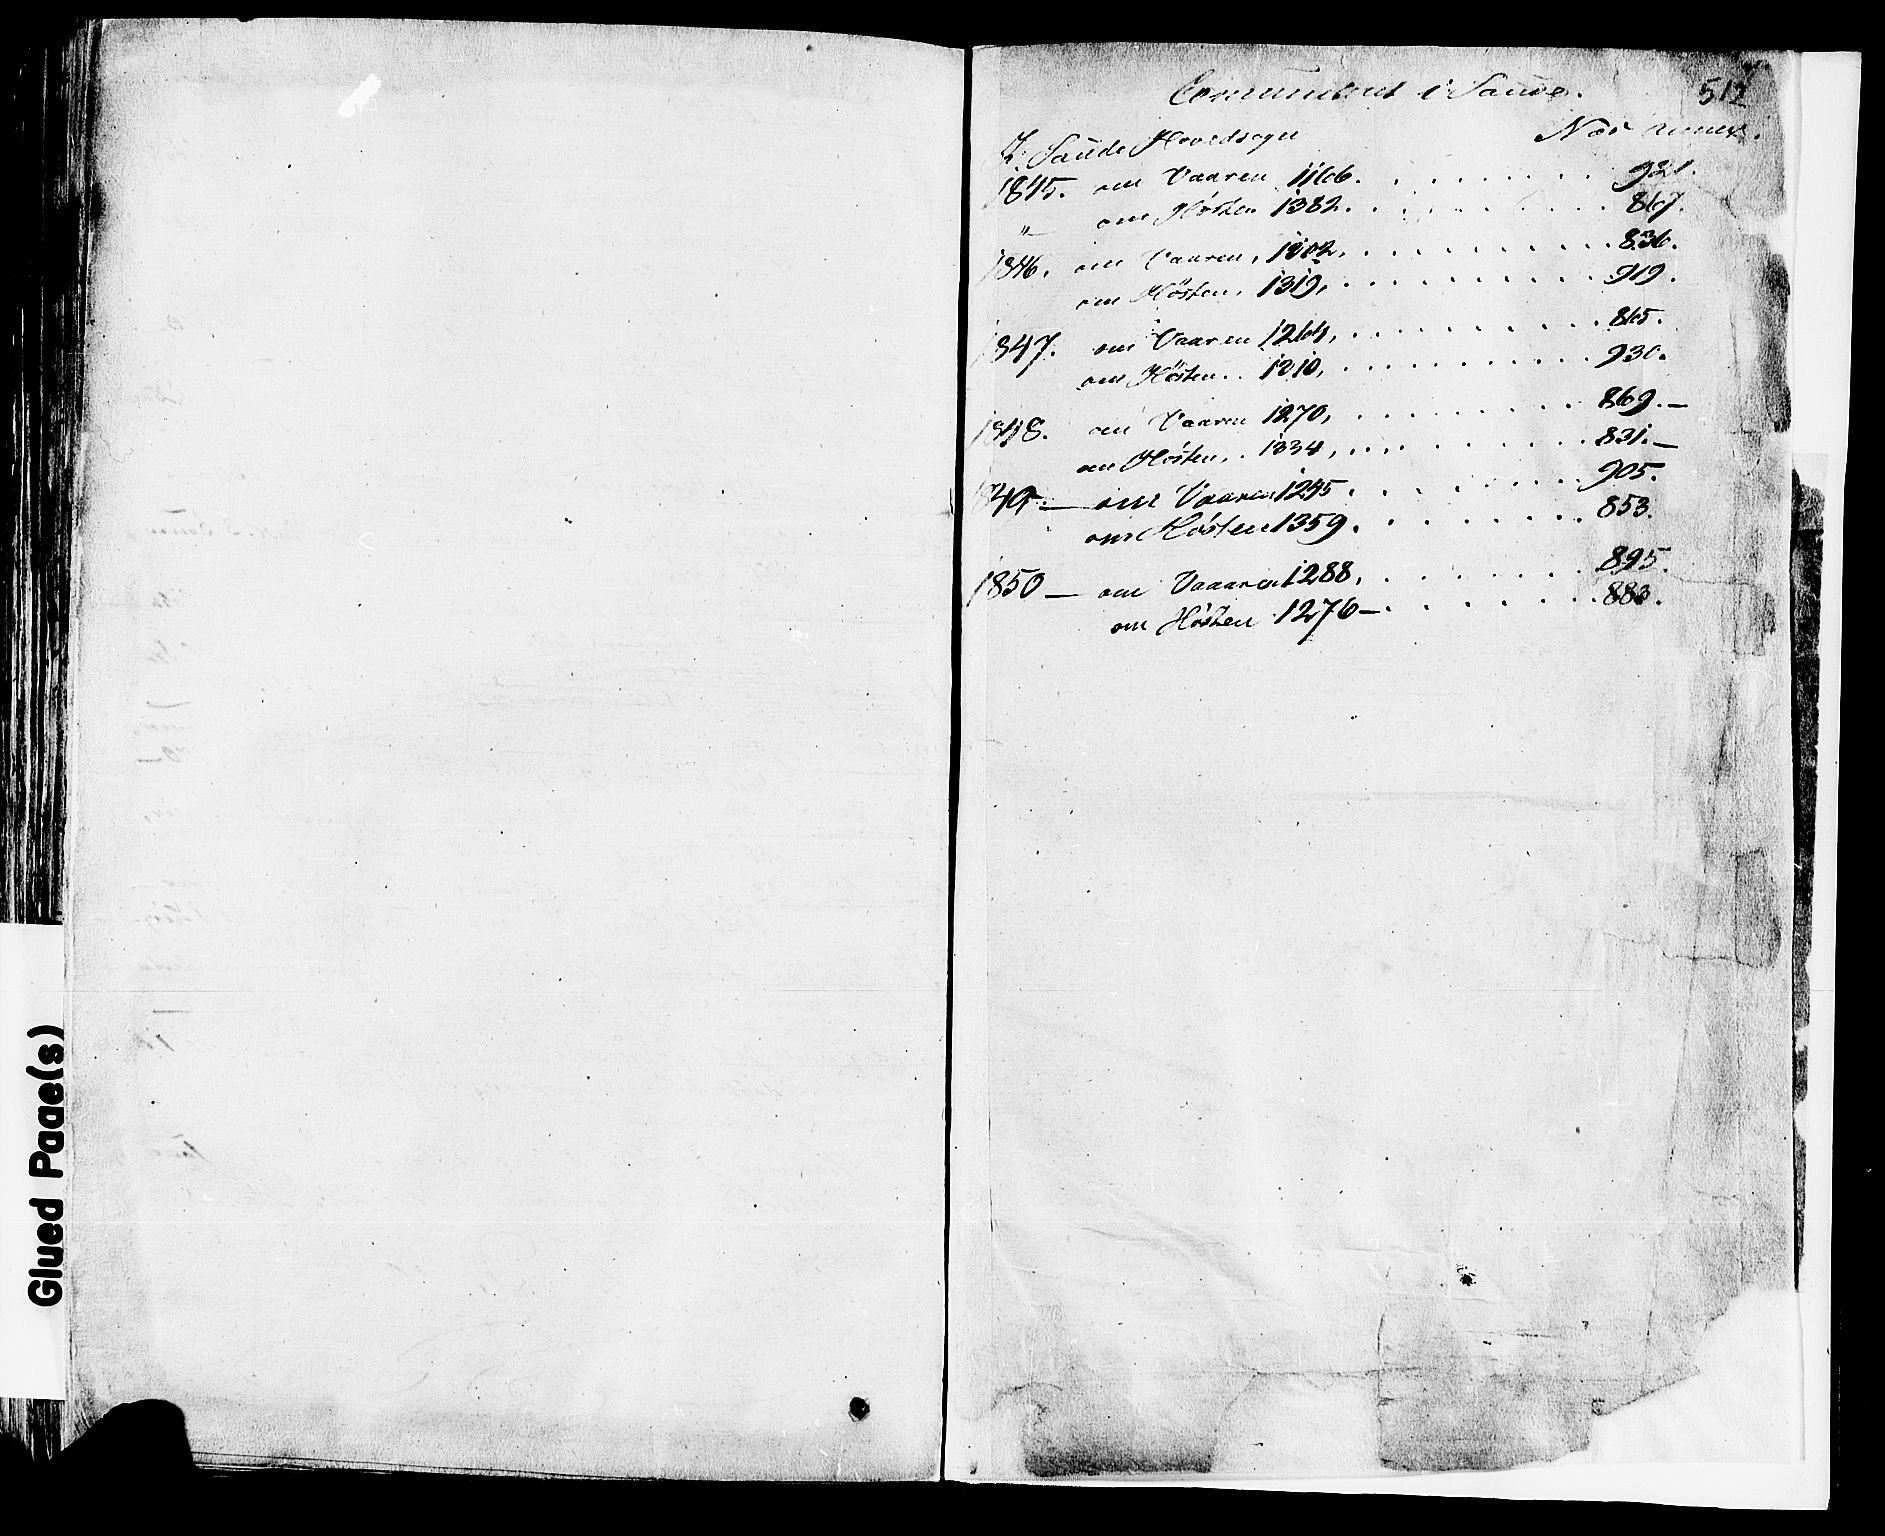 Glued Page(s)
512
Communicant i Saude.
I. Saude Hovedsogn
1845. om Vaaren 1166. . . . . . . . 921.
" om Høsten 1382. . . . . . . . 867.
1846. om Vaaren, 1202, . . . . . . . . 836.
om Høsten, 1319, . . . . . . . . 919.
1847. om Vaaren 1264, . . . . . . . . 865.
om Høsten . . 1210, . . . . . . . . 930.
1848. om Vaaren 1270, . . . . . . . . 869.—
om Høsten, . 1334, . . . . . . . . 831.—
1849.— om Vaaren 1245 . . . . . . . . 905.
om Høsten 1359 . . . . . . . . 853.
1850 — om Vaaaren 1288, . . . . . . . . 895.
om Høsten 1276 — . . . . . . . . 883.